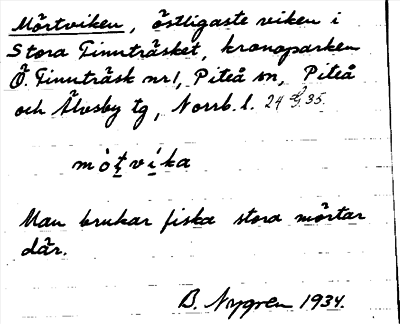 Mörtviken, östligaste viken i
Stora Finnträsket, kronoparken
Ö. Finnträsk nr 1, Piteå sn, Piteå
och Älvsby tg, Norrb. l. 24 35.
mò̀t̩vi̩ka
Man brukar fiska stora mörtar
där.
B. Nygren 1934.